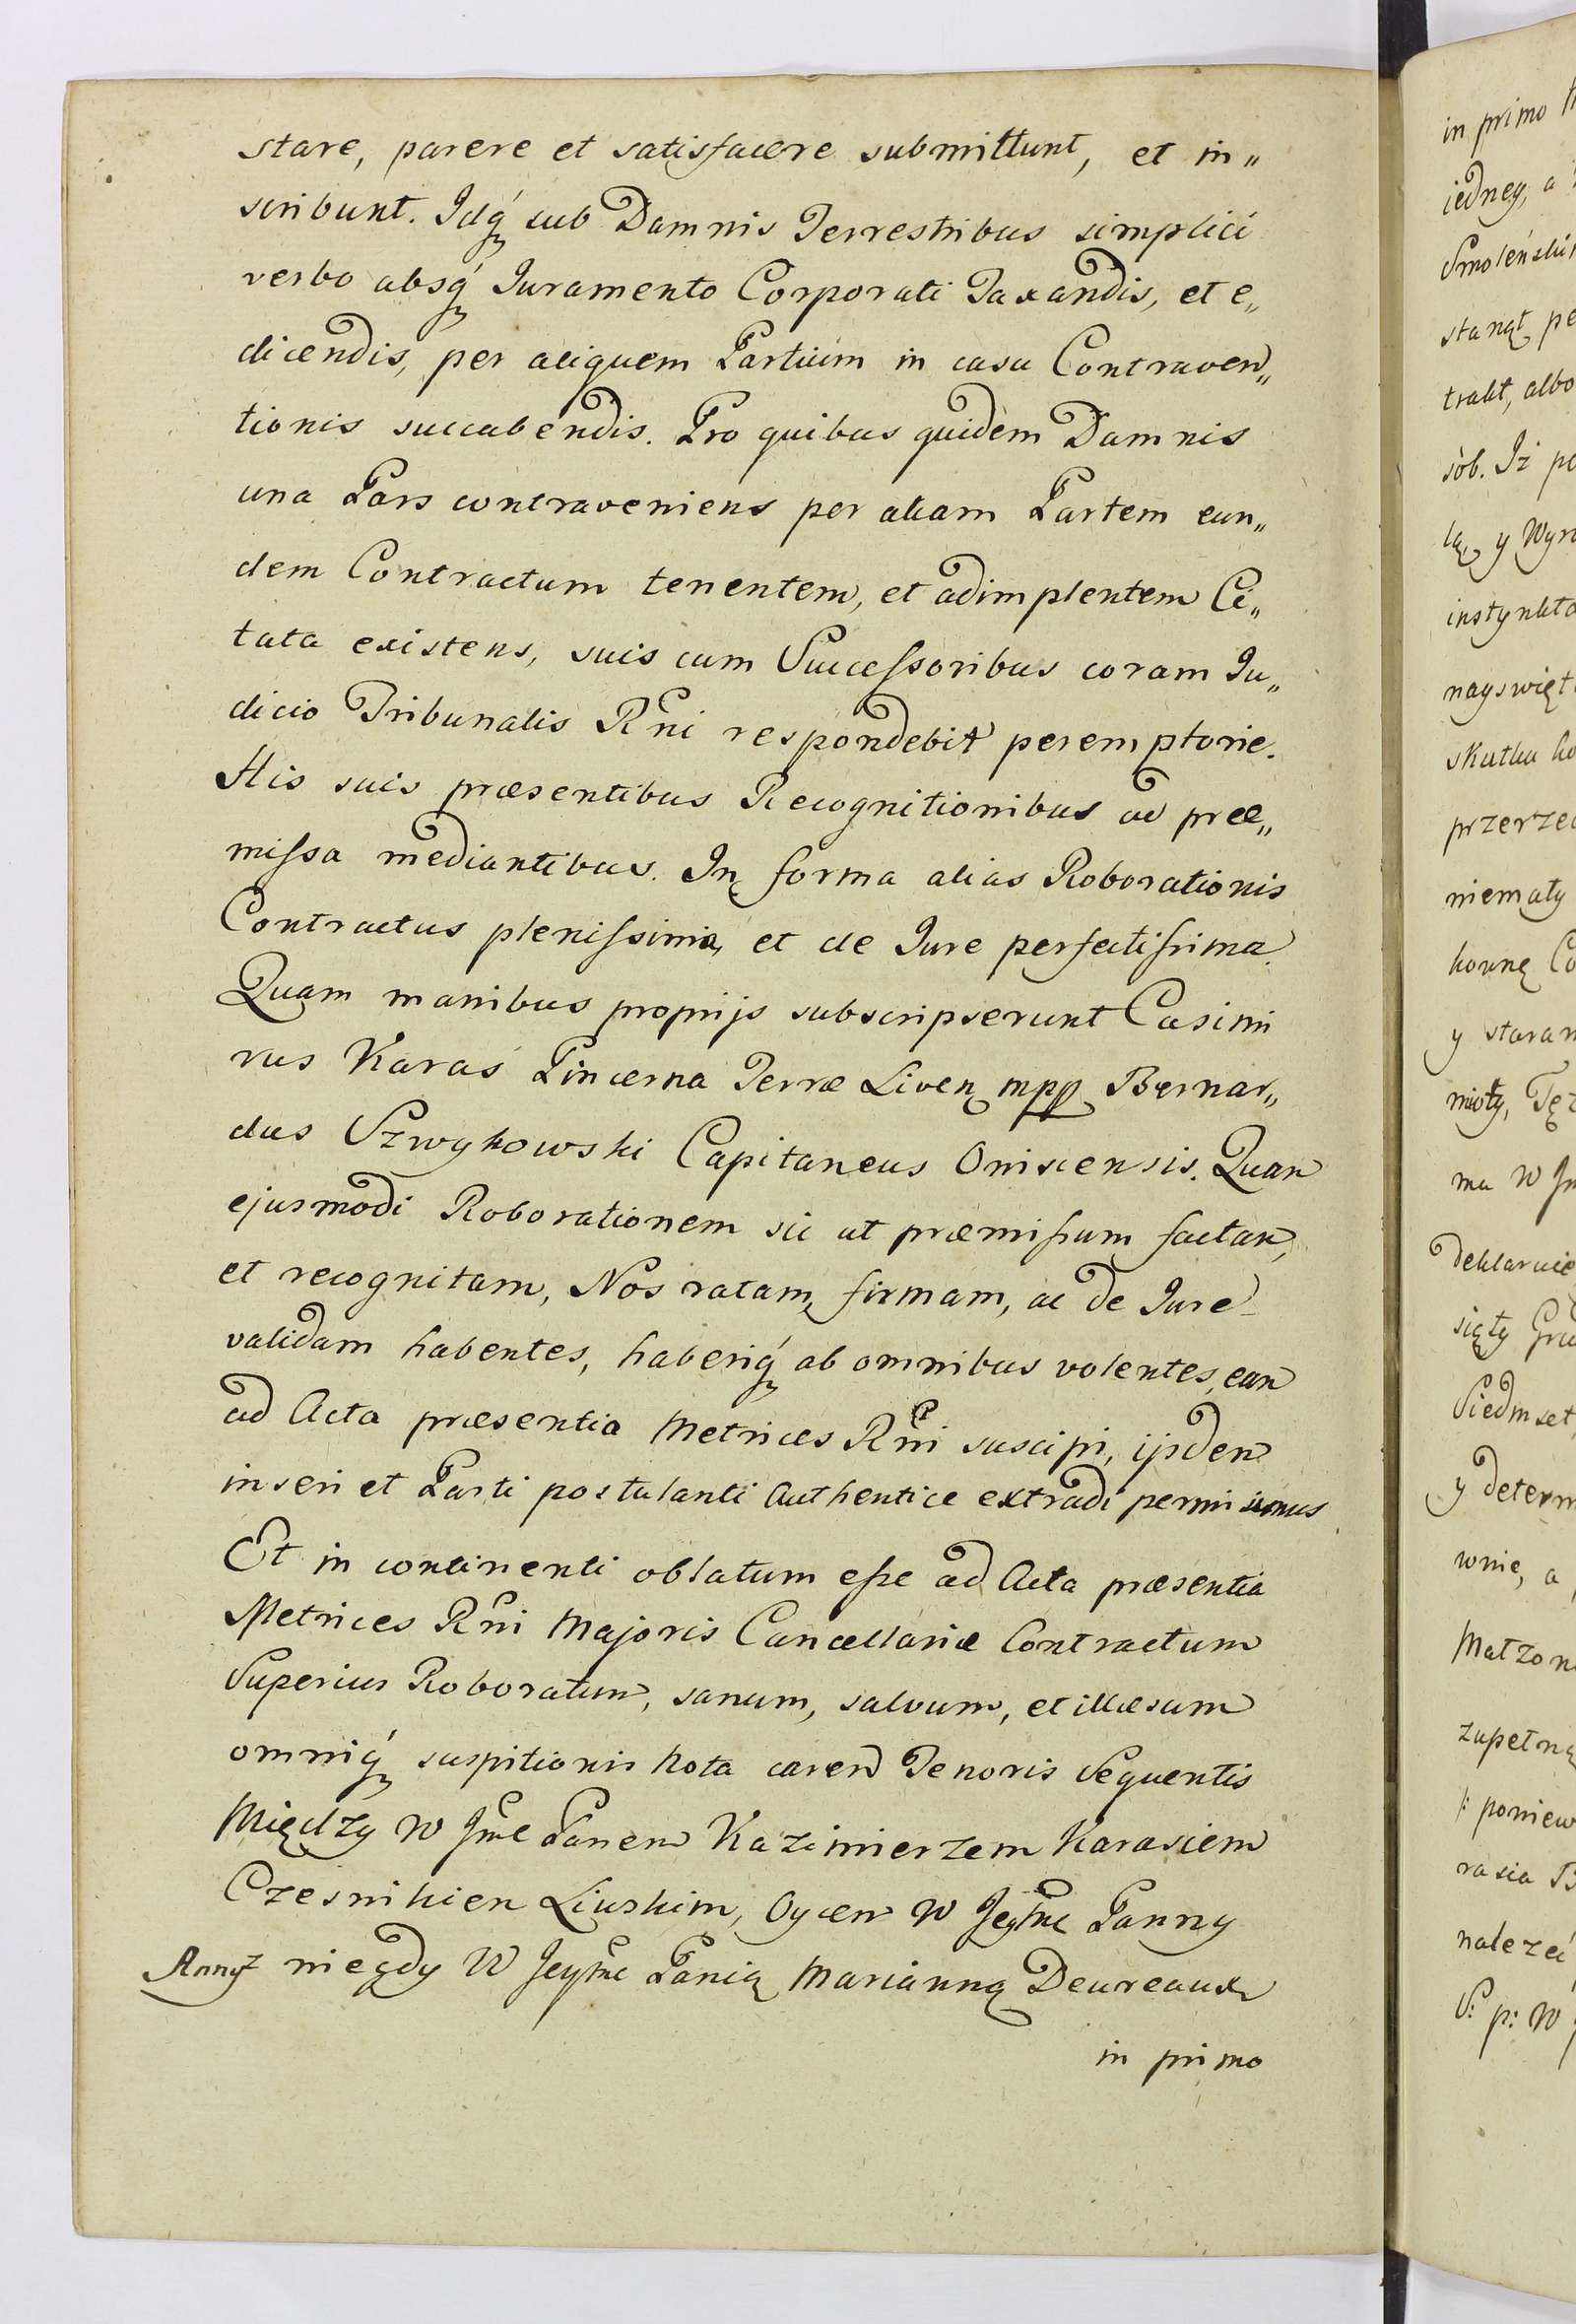 stare, parere et satisfacere submittunt, et in„
scribunt. Idq́ sub Damnis Terrestribus simplici
verbo absq́ Juramento Corporali Taxandis, et e„
dicendis, per aliquem Partium in casu Contraven„
tionis succubendis. Pro quibus quidem Damnis
una Pars contraveniens per aliam Partem eun„
dem Contractum tenentem, et adimplentem Ci„
tata existens, suis cum Successoribus coram Ju„
dicio Tribunalis Rni respondebit peremptorie.
His suis præsentibus Recognitionibus ad præ„
missa mediantibus. In forma alias Roborationis
Contractus plenissima, et de Jure perfectissima.
Quam manibus proprijs subscripserunt Casimi
rus Karaś Pincerna Terræ Liven mpp Bernar„
dus Szwykowski Capitaneus Oniscensis. Quam
ejusmodi Roborationem sic ut præmissum factam,
et recognitam, Nos ratam, firmam, ac de Jure
validam habentes, haberiq́ ab omnibus volentes, eam
ad Acta præsentia Metrices Rni suscipi, ijsdem
inseri et Parti postulanti Authentice extradi permisimus
Et in continenti oblatum esse ad Acta præsentia
Metrices Rni Majoris Cancellariæ Contractum
Superius Roboratum, sanum, salvum, et illæsum
omniq́ suspitionis nota caren Tenoris Sequentis
Między W Jmc Panem Kazimierzem Karasiem
Czesnikiem Liwskim, Oycem W Jeymc Panny
Anny z niegdy W Jeymc Panią Marianną Deureaux
in primo
in primo
iedney, a
stanął pe
trakt, albo
sób. Iż po
przerzec
niemały
y staran
ma W Jm
Siedmset
y determ
wnie, a
zupełną
rasia B
należeć
S: p: W